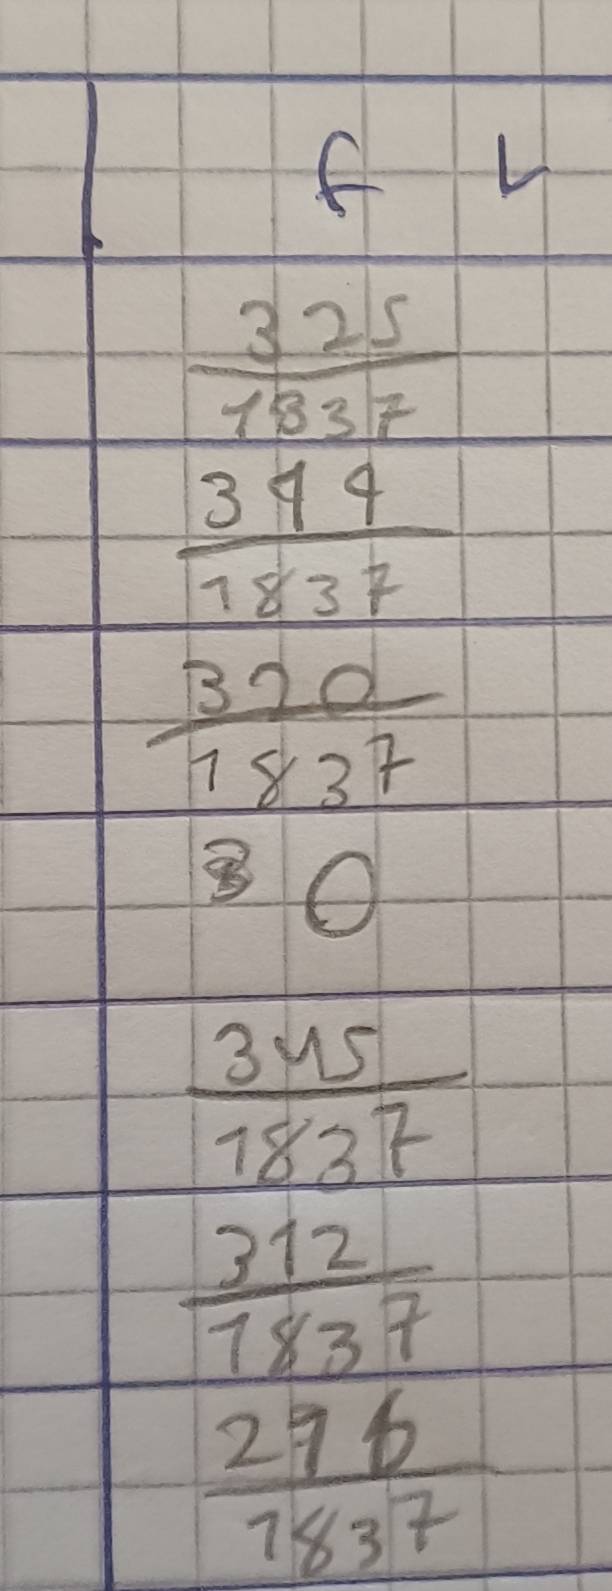 f r
325
1837
344
1837
320
1837
0
345
1837
312
1837
1837